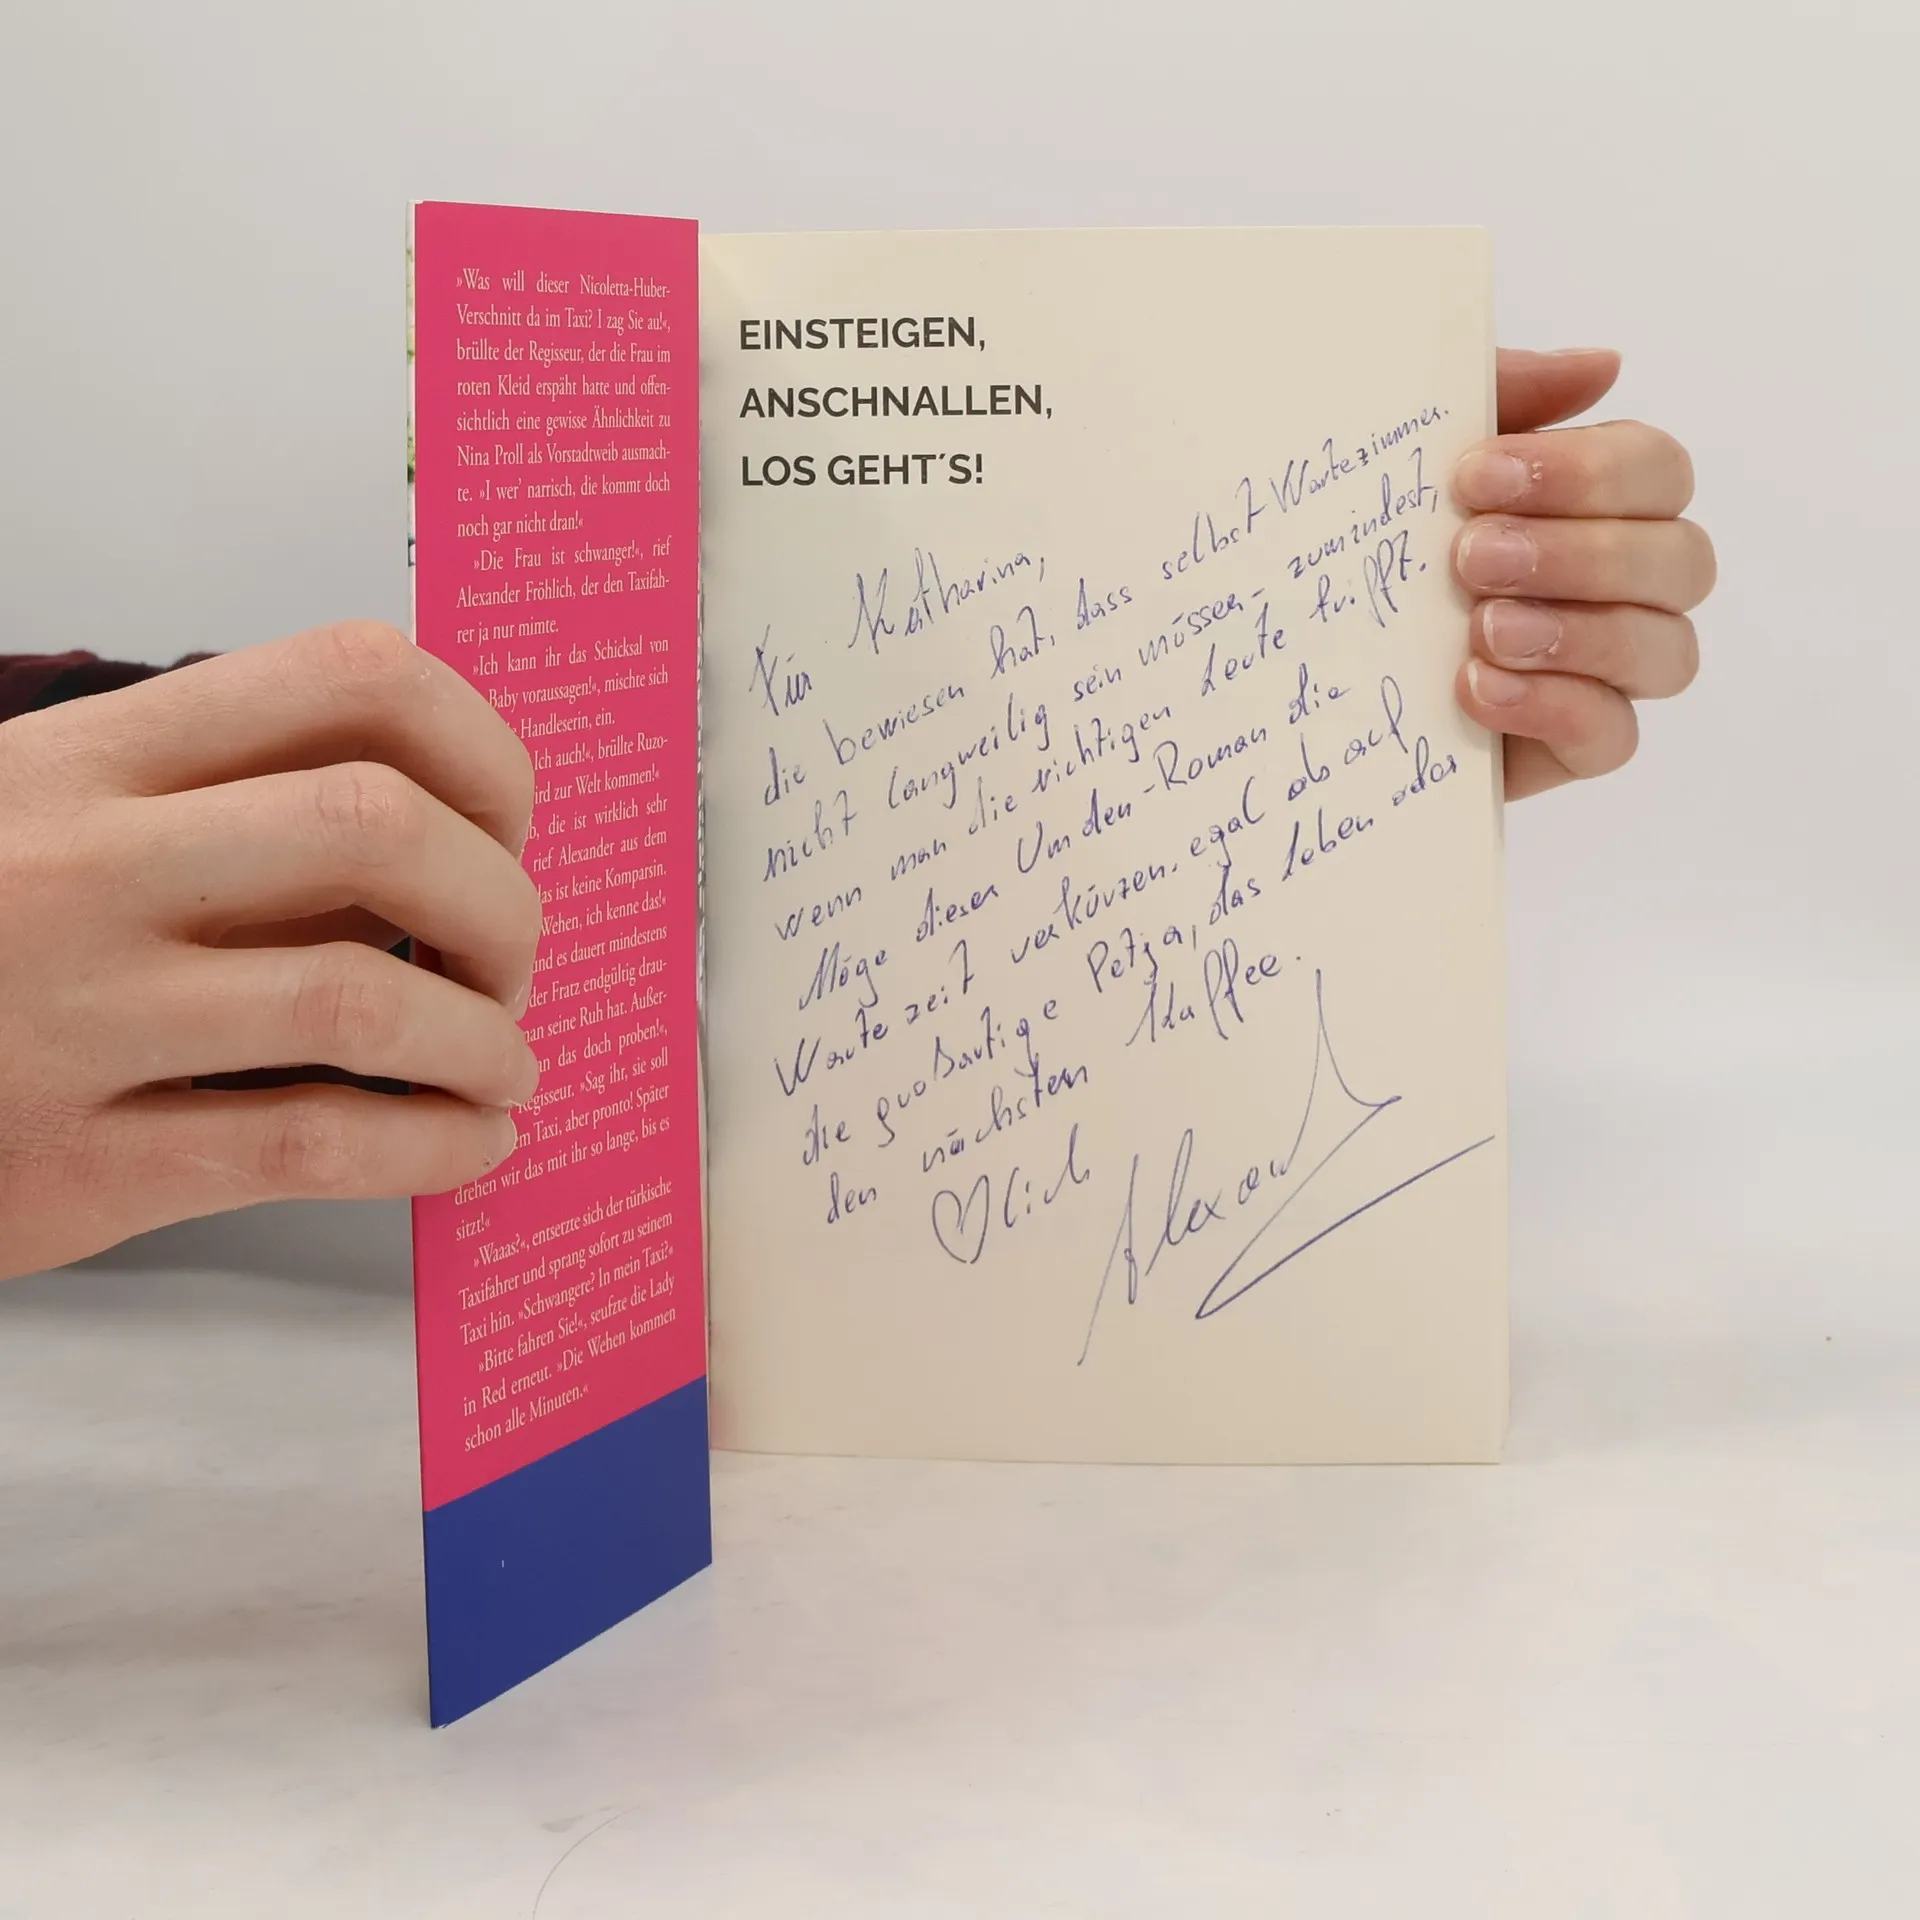 »Was will dieser Nicoletta-Huber-
Verschnitt da im Taxi? I zag Sie au!«,
brüllte der Regisseur, der die Frau im
roten Kleid erspäht hatte und offen-
sichtlich eine gewisse Ähnlichkeit zu
Nina Proll als Vorstadtweib ausmach-
te. »I wer’ narrisch, die kommt doch
noch gar nicht dran!«
»Die Frau ist schwanger!«, rief
Alexander Fröhlich, der den Taxifah-
rer ja nur mimte.
»Ich kann ihr das Schicksal von
Baby voraussagen!«, mischte sich
Handleserin, ein.
Ich auch!«, brüllte Ruzo-
ird zur Welt kommen!«
b, die ist wirklich sehr
rief Alexander aus dem
das ist keine Komparsin.
Wehen, ich kenne das!«
und es dauert mindestens
der Fratz endgültig drau-
man seine Ruh hat. Außer-
nn das doch proben!«,
Regisseur. »Sag ihr, sie soll
em Taxi, aber pronto! Später
drehen wir das mit ihr so lange, bis es
sitzt!«
»Waaas?«, entsetzte sich der türkische
Taxifahrer und sprang sofort zu seinem
Taxi hin. »Schwangere? In mein Taxi?«
»Bitte fahren Sie!«, seufzte die Lady
in Red erneut. »Die Wehen kommen
schon alle Minuten.«
EINSTEIGEN,
ANSCHNALLEN,
LOS GEHT´S!
Für Katharina,
die bewiesen hat, dass selbst Wartezimmer
nicht langweilig sein müssen - zumindest,
wenn man die richtigen Leute trifft.
Möge dieser Um den-Roman die
Wartezeit verkürzen, egal ob auf
die großartige Petja, das Leben oder
den nächsten Kaffee.
♡lich Alexand